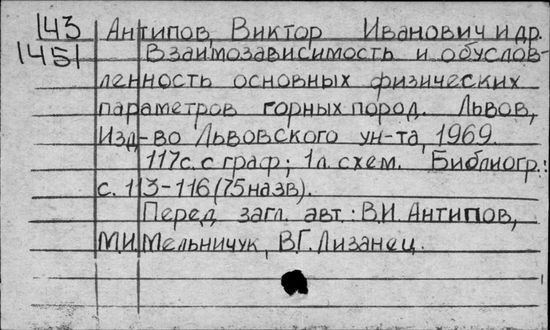 143 Антипов, Виктор Иванович и др.
1451 Взаимозависимость и обуслов-
ленность основных физических
параметров горных пород. Львов,
Изд-во Львовского ун-та, 1969.
117с. с граф; 1л. схем. Библиогр.:
с. 113-116 (75назв).
Перед загл. авт.: В.И. Антипов,
М.И. Мельничук, В.Г. Лизанец.